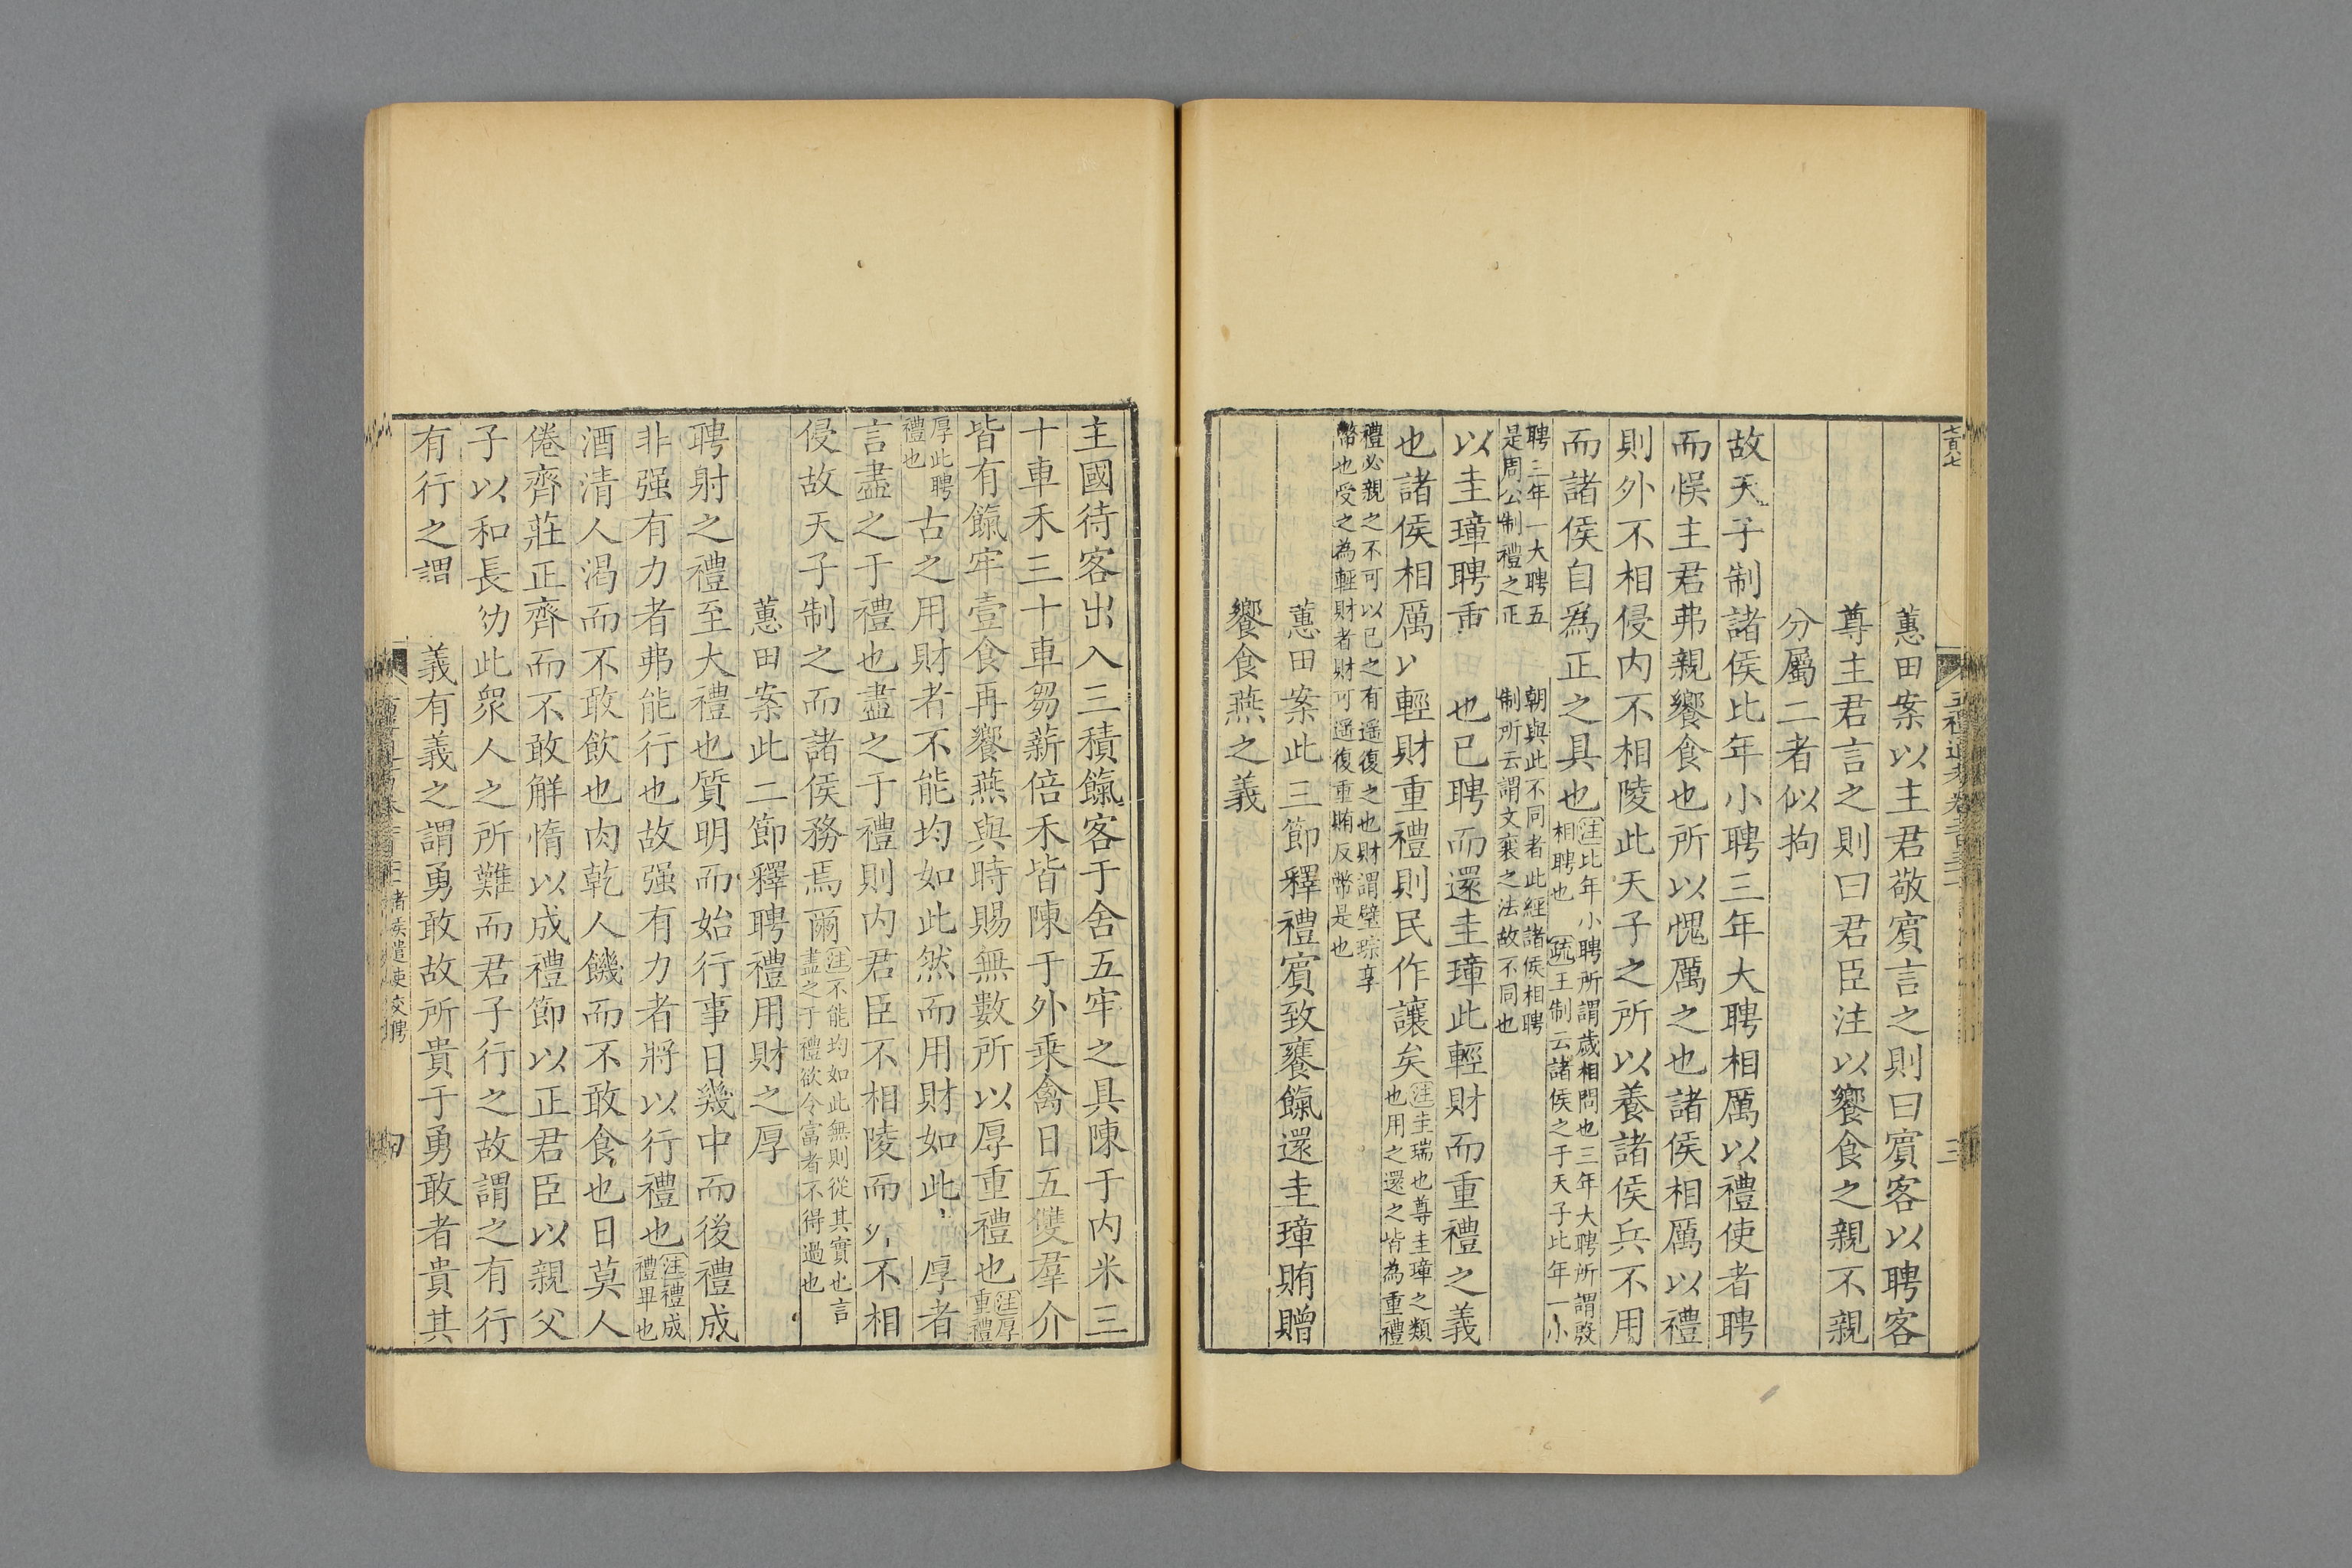 蕙田案以主君敬賓言之則曰賓客以聘客
尊主君言之則曰君臣注以饗食之親不親
分屬二者似拘
故天子制諸侯比年小聘三年大聘相厲以禮使者聘
而悞主君弗親饗食也所以愧厲之也諸侯相厲以禮
則外不相侵内不相陵此天子之所以養諸侯兵不用
而諸侯自爲正之具也
注比年小聘所謂歲相問也三年大聘所謂殷
相聘也 疏王制云諸侯之于天子比年一小
聘三年一大聘五 朝與此不同者此經諸侯相聘
是周公制禮之正 制所云謂文襄之法故不同也
以圭璋聘重 也已聘而還圭璋此輕財而重禮之義
也諸侯相厲以輕財重禮則民作讓矣
注圭瑞也尊圭璋之類
也用之還之皆為重禮
禮必親之不可以已之有遥復之也財謂璧琮享
幣也受之為輕財者財可遥復重賄反幣是也
蕙田案此三節釋禮賓致饔餼還圭璋賄贈
饗食燕之義
七百七
主國待客出入三積餼客于舍五牢之具陳于内米三
十車禾三十車芻薪倍禾皆陳于外乘禽日五雙羣介
皆有餼牢壹食再饗燕與時賜無數所以厚重禮也
注厚
重禮
厚此聘
禮也
古之用財者不能均如此然而用財如此 厚者
言盡之于禮也盡之于禮則内君臣不相陵而 不相
侵故天子制之而諸侯務焉爾
注不能均如此無則從其實也言
盡之于禮欲令富者不得過也
蕙田案此二節釋聘禮用財之厚
聘射之禮至大禮也質明而始行事日幾中而後禮成
非强有力者弗能行也故强有力者將以行禮也
注禮成
禮畢也
酒清人渴而不敢飲也肉乾人饑而不敢食也日莫人
倦齊莊正齊而不敢解惰以成禮節以正君臣以親父
子以和長幼此衆人之所難而君子行之故謂之有行
有行之謂 義有義之謂勇敢故所貴于勇敢者貴其
諸侯遣使交聘